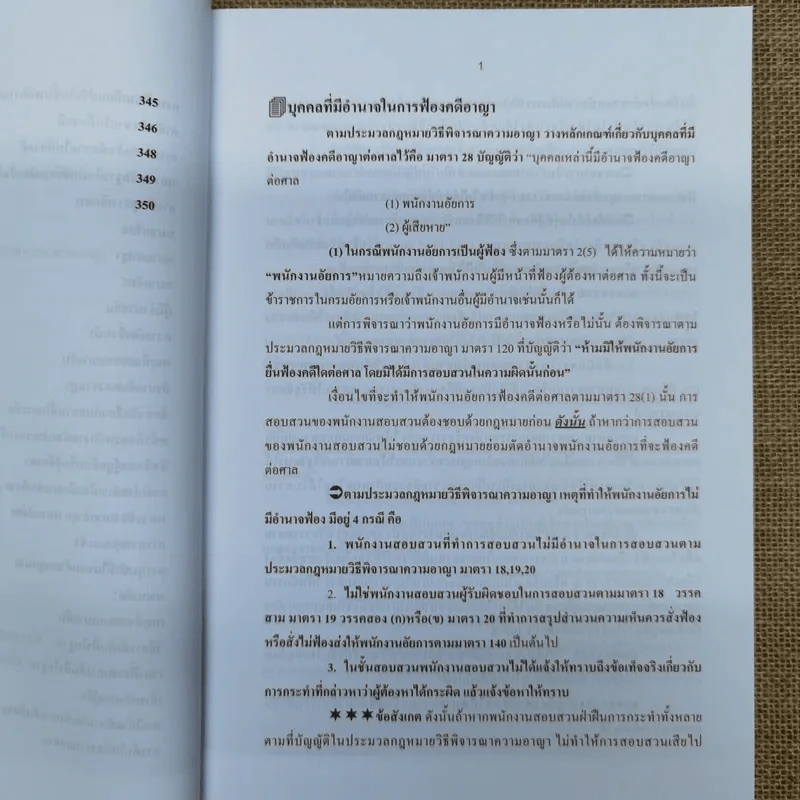 345
346
348
349
350
1
บุคคลที่มีอำนาจในการฟ้องคดีอาญา
ตามประมวลกฎหมายวิธีพิจารณาความอาญา วางหลักเกณฑ์เกี่ยวกับบุคคลที่มี
อำนาจฟ้องคดีอาญาต่อศาลไว้คือ มาตรา 28 บัญญัติว่า “บุคคลเหล่านี้มีอำนาจฟ้องคดีอาญา
ต่อศาล
(1) พนักงานอัยการ
(2) ผู้เสียหาย”
(1) ในกรณีพนักงานอัยการเป็นผู้ฟ้อง ซึ่งตามมาตรา 2(5) ได้ให้ความหมายว่า
“พนักงานอัยการ”หมายความถึงเจ้าพนักงานผู้มีหน้าที่ฟ้องผู้ต้องหาต่อศาล ทั้งนี้จะเป็น
ข้าราชการในกรมอัยการหรือเจ้าพนักงานอื่นผู้มีอำนาจเช่นนั้นก็ได้
แต่การพิจารณาว่าพนักงานอัยการมีอำนาจฟ้องหรือไม่นั้น ต้องพิจารณาตาม
ประมวลกฎหมายวิธีพิจารณาความอาญา มาตรา 120 ที่บัญญัติว่า “ห้ามมิให้พนักงานอัยการ
ยื่นฟ้องคดีใดต่อศาล โดยมิได้มีการสอบสวนในความผิดนั้นก่อน”
เงื่อนไขที่จะทำให้พนักงานอัยการฟ้องคดีต่อศาลตามมาตรา 28(1) นั้น การ
สอบสวนของพนักงานสอบสวนต้องชอบด้วยกฎหมายก่อน ดังนั้น ถ้าหากว่าการสอบสวน
ของพนักงานสอบสวนไม่ชอบด้วยกฎหมายย่อมตัดอำนาจพนักงานอัยการที่จะฟ้องคดี
ต่อศาล
ตามประมวลกฎหมายวิธีพิจารณาความอาญา เหตุที่ทำให้พนักงานอัยการไม่
มีอำนาจฟ้อง มีอยู่ 4 กรณี คือ
1. พนักงานสอบสวนที่ทำการสอบสวนไม่มีอำนาจในการสอบสวนตาม
ประมวลกฎหมายวิธีพิจารณาความอาญา มาตรา 18,19,20
2. ไม่ใช่พนักงานสอบสวนผู้รับผิดชอบในการสอบสวนตามมาตรา 18 วรรค
สาม มาตรา 19 วรรคสอง (ก)หรือ(ข) มาตรา 20 ที่ทำการสรุปสำนวนความเห็นควรสั่งฟ้อง
หรือสั่งไม่ฟ้องส่งให้พนักงานอัยการตามมาตรา 140 เป็นต้นไป
3. ในชั้นสอบสวนพนักงานสอบสวนไม่ได้แจ้งให้ทราบถึงข้อเท็จจริงเกี่ยวกับ
การกระทำที่กล่าวหาว่าผู้ต้องหาได้กระผิด แล้วแจ้งข้อหาให้ทราบ
✶✶✶ข้อสังเกต ดังนั้นถ้าหากพนักงานสอบสวนฝ่าฝืนการกระทำทั้งหลาย
ตามที่บัญญัติในประมวลกฎหมายวิธีพิจารณาความอาญา ไม่ทำให้การสอบสวนเสียไป